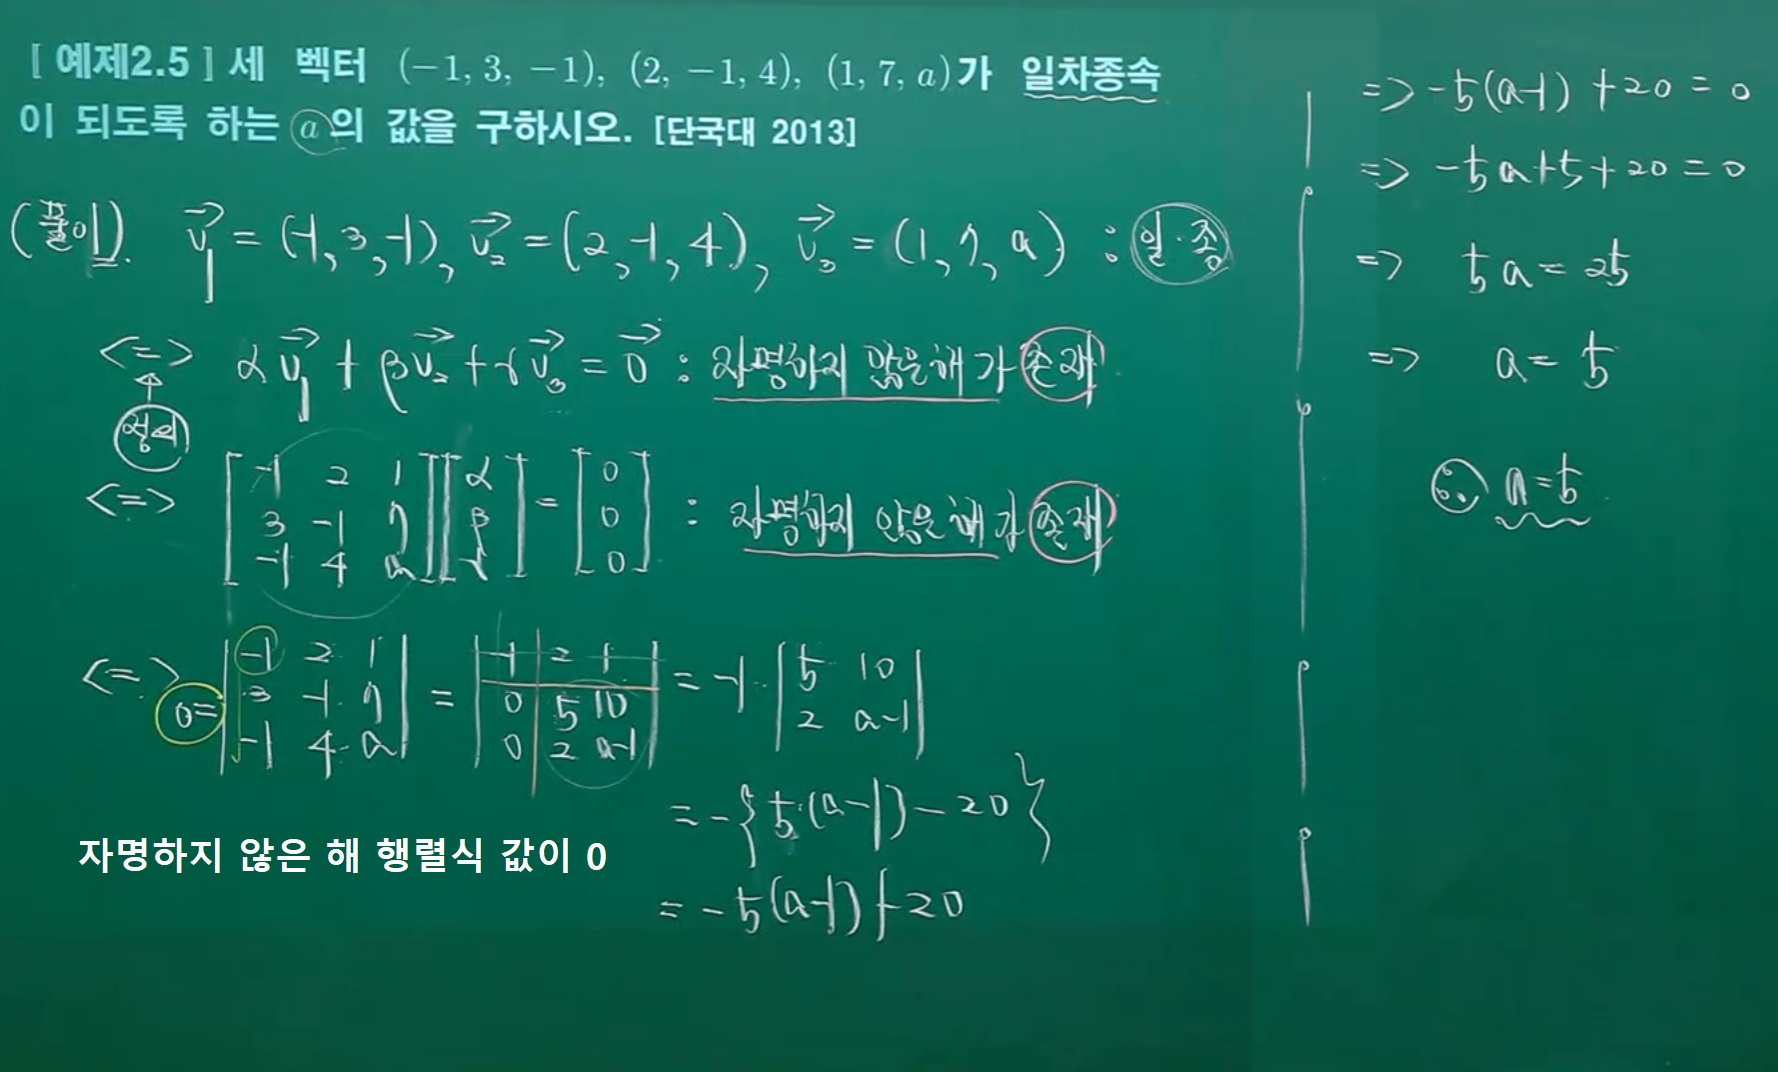 [ 예제2.5 ] 세 벡터 (−1, 3, −1), (2, −1, 4), (1, 7, a)가 일차종속
이 되도록 하는 a의 값을 구하시오. [단국대 2013]
(풀이). v₁ = (-1, 3, -1), v₂ = (2, -1, 4), v₃ = (1, 7, a) : 일·종
<=> αv₁ + βv₂ + γv₃ = 0 : 자명하지 않은 해가 존재
정의
<=> [-1 2 1] [α] = [0] : 자명하지 않은 해가 존재
[3 -1 7] [β] [0]
[-1 4 a] [γ] [0]
<=> 0 = |-1 2 1| = |-1 2 1| = -1· |5 10|
|3 -1 7| |0 5 10| |2 a-1|
|-1 4 a| |0 2 a-1|
= -{5·(a-1) - 20}
= -5(a-1) + 20
자명하지 않은 해 행렬식 값이 0
=> -5(a-1) + 20 = 0
=> -5a+5+20 = 0
=> 5a = 25
=> a = 5
∴ a = 5